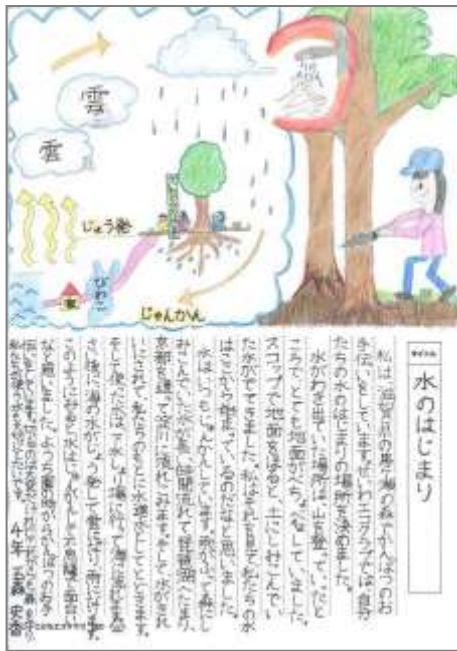 雲
雲
じょう発
びわこ
家
じゅんかん
タイトル
水のはじまり
私は、滋賀県の黒
海の森でかんばつのお
手伝いをしています。びわエコクラブでは自分
たちの水のはじまりの場所を決めました。
水がわき出ていた場所は、山を登っていったと
ころで、とても地面がべちゃべちゃしていました。
スコップで地面をほると、土にしみこんでい
た水がでてきました。私はそれを見て、私たちの水
はここから始まっているのだなと思いました。
水はいつもじゅんかんしています。雨がふって森にし
みこんでいた水が長い時間流れて琵琶湖へたまり、
京都を通って淀川へ流れこみます。そして水がきれ
いにされて、私たちのもとに水道水としてとどきます。
そして使った水は下水しょり場に行って海に流れます。
さい後に海の水がじょう発して雲になり、雨になります。
このようにぜんぶ水はじゅんかんしていて
面白い
なと思いました。ようち園の時からかんばつのお手
伝いをしています。
4年
史香